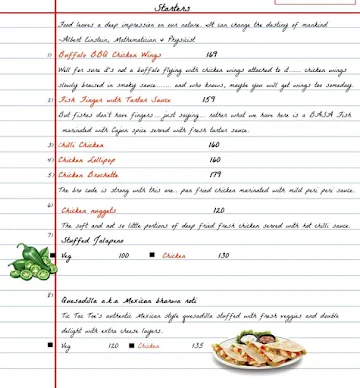 Starters
Food leaves a deep impression on our nature. It can change the destiny of mankind
-Albert Einstein, Mathematician & Physicist
1) Buffalo BBQ Chicken Wings 169
Well for sure it's not a buffalo flying with chicken wings attached to it...... chicken wings
slowly braised in smoky sauce........ and who knows, maybe you will get wings too someday.
2) Fish Finger with Tartar Sauce 159
But fishes don't have fingers... just saying... rather what we have here is a BASA Fish
marinated with Cajun spice served with fresh tartar sauce.
3) Chilli Chicken 160
4) Chicken Lollipop 160
5) Chicken Brochette 179
The bro code is strong with this one.. pan fried chicken marinated with mild peri peri sauce.
6)
Chicken nuggets 120
The soft and not so little portions of deep fried fresh chicken served with hot chilli sauce.
7)
Stuffed Jalapeno
Veg 100 Chicken 130
8)
Quesadilla a.k.a Mexican bharwa roti
Tic Tac Toe's authentic Mexican style quesadilla stuffed with fresh veggies and double
delight with extra cheese layers.
Veg 120 Chicken 135